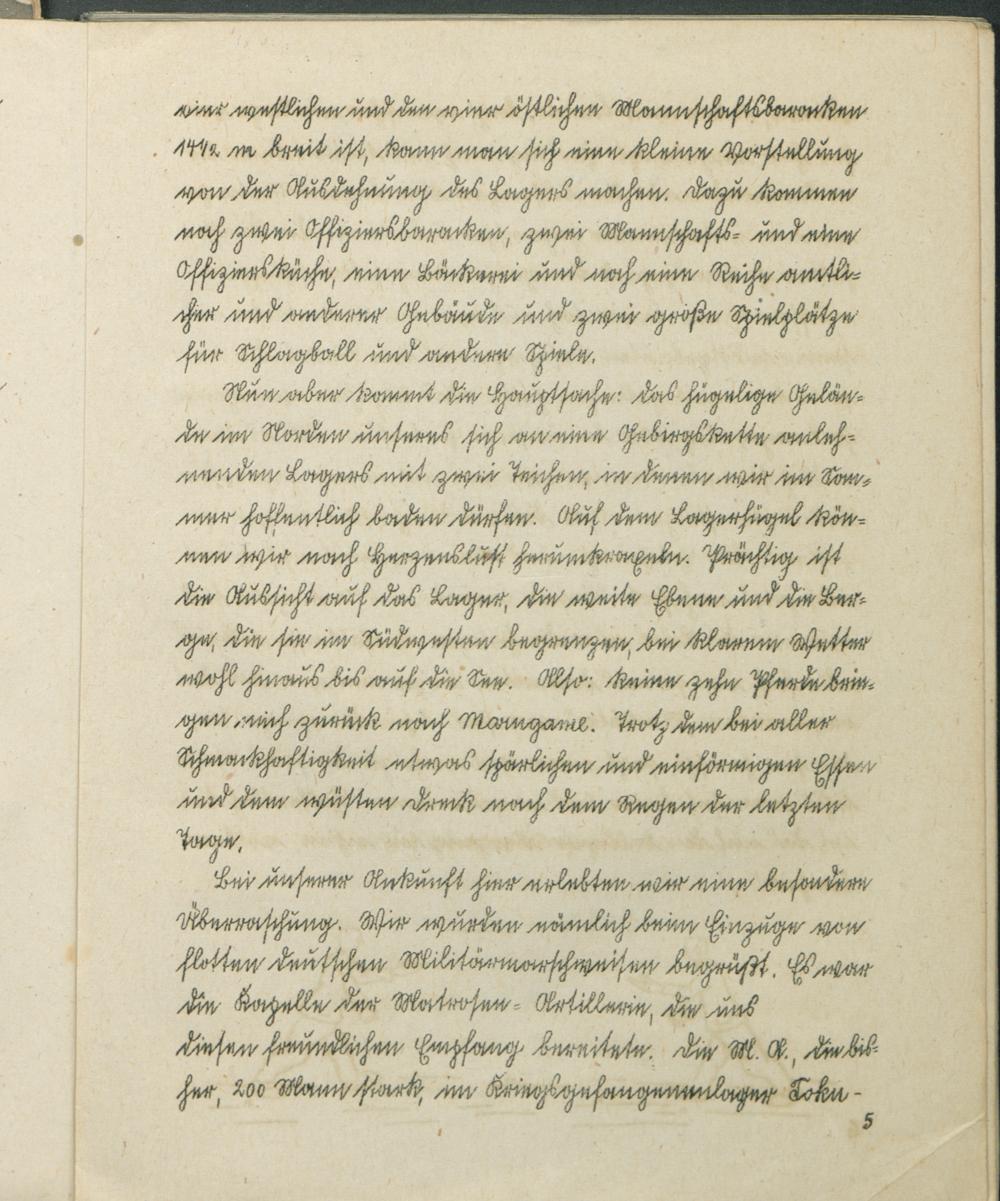 vier westlichen und den vier östlichen Mannschaftsbaracken
14½ m breit ist, kann man sich eine kleine Vorstellung
von der Ausdehnung des Lagers machen. Dazu kommen
noch zwei Offiziersbaracken, zwei Mannschafts- und eine
Offiziersküche, eine Bäckerei und noch eine Reihe amtli-
cher und anderer Gebäude und zwei große Spielplätze
für Schlagball und andere Spiele.
Nun aber kommt die Hauptsache: das hügelige Gelän-
de im Norden unseres sich an eine Gebirgskette anleh-
nenden Lagers mit zwei Teichen, in denen wir im Som-
mer hoffentlich baden dürfen. Auf dem Lagerhügel kön-
nen wir nach Herzenslust herumkraxeln. Prächtig ist
die Aussicht auf das Lager, die weite Ebene und die Ber-
ge, die sie im Südwesten begrenzen, bei klarem Wetter
wohl hinaus bis auf die See. Also: keine zehn Pferde brin-
gen mich zurück nach Marugame. Trotz dem bei aller
Schmackhaftigkeit etwas spärlichen und einförmigen Essen
und dem wüsten Dreck nach dem Regen der letzten
Tage.
Bei unserer Ankunft hier erlebten wir eine besondere
Überraschung. Wir wurden nämlich beim Einzuge von
flotten deutschen Militärmarschweisen begrüßt. Es war
die Kapelle der Matrosen-Artillerie, die uns
diesen freundlichen Empfang bereitete. Die M. A., die bis-
her, 200 Mann stark, im Kriegsgefangenenlager Toku-
5